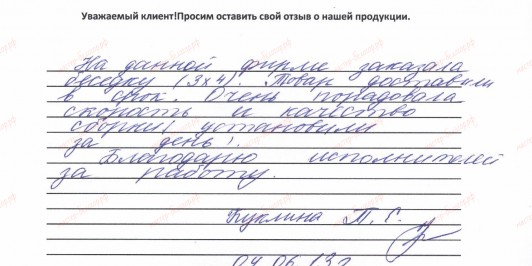 Уважаемый клиент!Просим оставить свой отзыв о нашей продукции.
На данной фирме заказала
беседку (3х4). Товар доставили
в срок. Очень порадовала
скорость и качество
сборки! установили
за день!
Благодарю исполнителей
за работу.
Куклина Т. Г.
04.06.13г